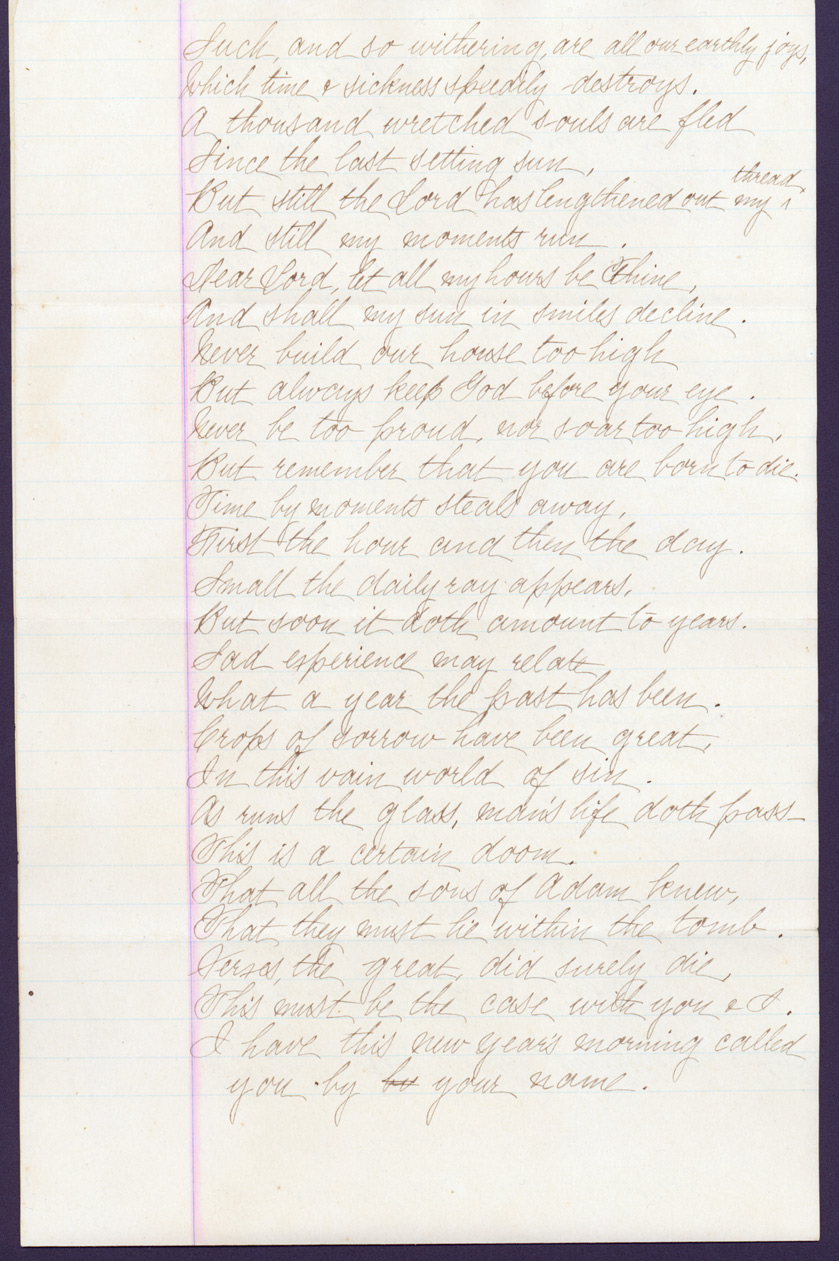 Such, and so withering, are all our earthly joys,
Which time & sickness speedily destroys.
A thousand wretched souls are fled
Since the last setting sun,
But still the Lord has lengthened out my thread,
And still my moments run.
Dear Lord, let all my hours be Thine,
And shall my sun in smiles decline.
Never build our house too high
But always keep God before your eye.
Never be too proud, nor soar too high,
But remember that you are born to die.
Time by moments steals away,
First the hour and then the day.
Small the daily ray appears,
But soon it doth amount to years.
Sad experience may relate
What a year the past has been.
Crops of sorrow have been great,
In this vain world of sin.
As runs the glass, man's life doth pass
This is a certain doom.
That all the sons of Adam knew,
That they must lie within the tomb.
Xerxes, the great, did surely die,
This must be the case with you & I.
I have this new year's morning called
you by bu your name.